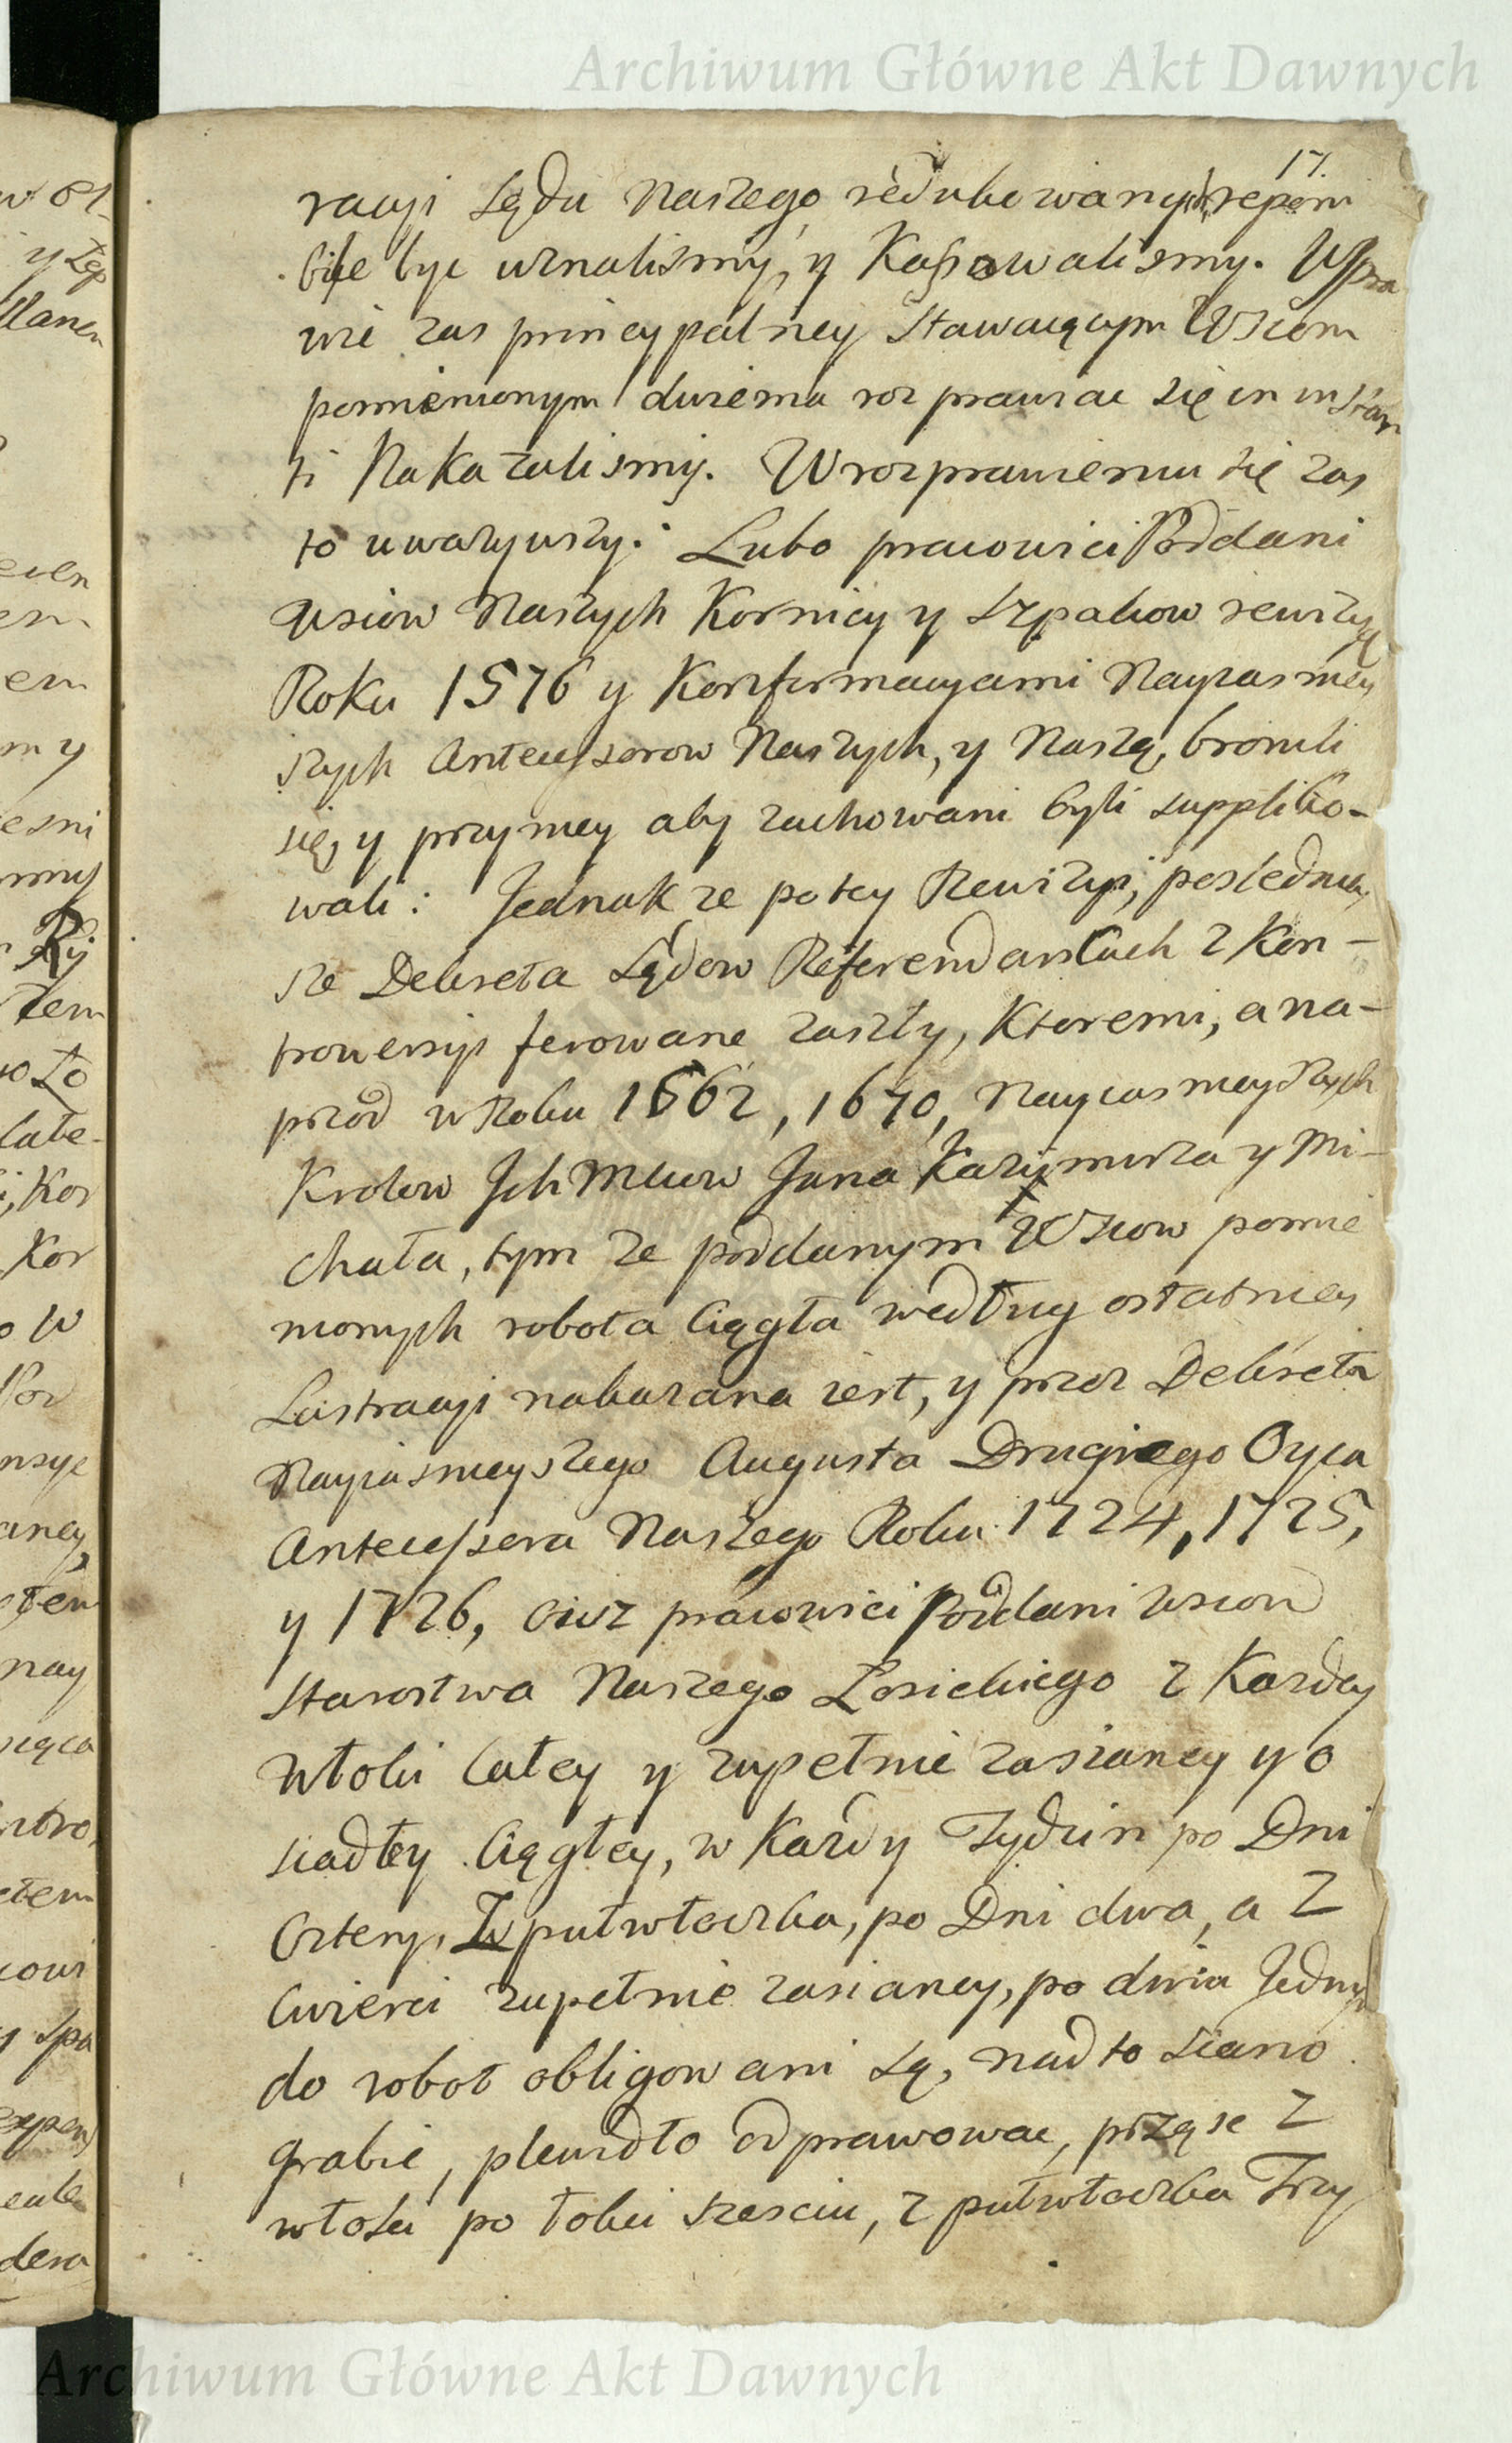 Archiwum Główne Akt Dawnych
17.
racyi Sądu Naszego redukowanych, reponi
bile byc uznalismy, y Kassowalismy. W spra
wie zas pryncypalney stawaiącym Wsiom
pomienionym dwiema rozprawiac się in instan
ti Nakazalismy. W rozprawieniu się zas
to uwazywszy: Lubo pracowici Poddani
wsiow Naszych Kornicy y Szpakow rewizyą
Roku 1576 y Konfirmacyami Nayiasniey
szych Antecessorow Naszych, y Naszą, bronili
się, y przy niey aby zachowani byli suppliko-
wali: Jednak ze po tey Rewizyi, poslednie
sze Dekreta Sądow Referendarskich z Kon-
trowersyi ferowane zaszły, Ktoremi, a na-
przod w Roku 1662, 1670, Nayiasnieyszych
Krolow Ich Mciow Jana Kazimierza y Mi-
chała, tym ze poddanym Wsiow pomie
nionych robota Ciągła według ostatniey
Lustracyi nakazana iest, y przez Dekreta
Nayiasnieyszego Augusta Drugiego Oyca
Antecessora Naszego Roku 1724, 1725,
y 1726, ciz pracowici Poddani wsiow
Starostwa Naszego Łosickiego z Kazdey
włoki Całey y zupełnie zasianey y o
siadłey Ciągłey, w Kazdy Tydzien po Dni
Cztery, Z pułwłoczka, po Dni dwa, a Z
Cwierci zupełnie zasianey, po dniu Jednym
do robot obligowani są, nadto siano
grabic, plewidło odprawowac, prząsc z
włoki po łokci szesciu, z pułwłoczka Trzy
Archiwum Główne Akt Dawnych